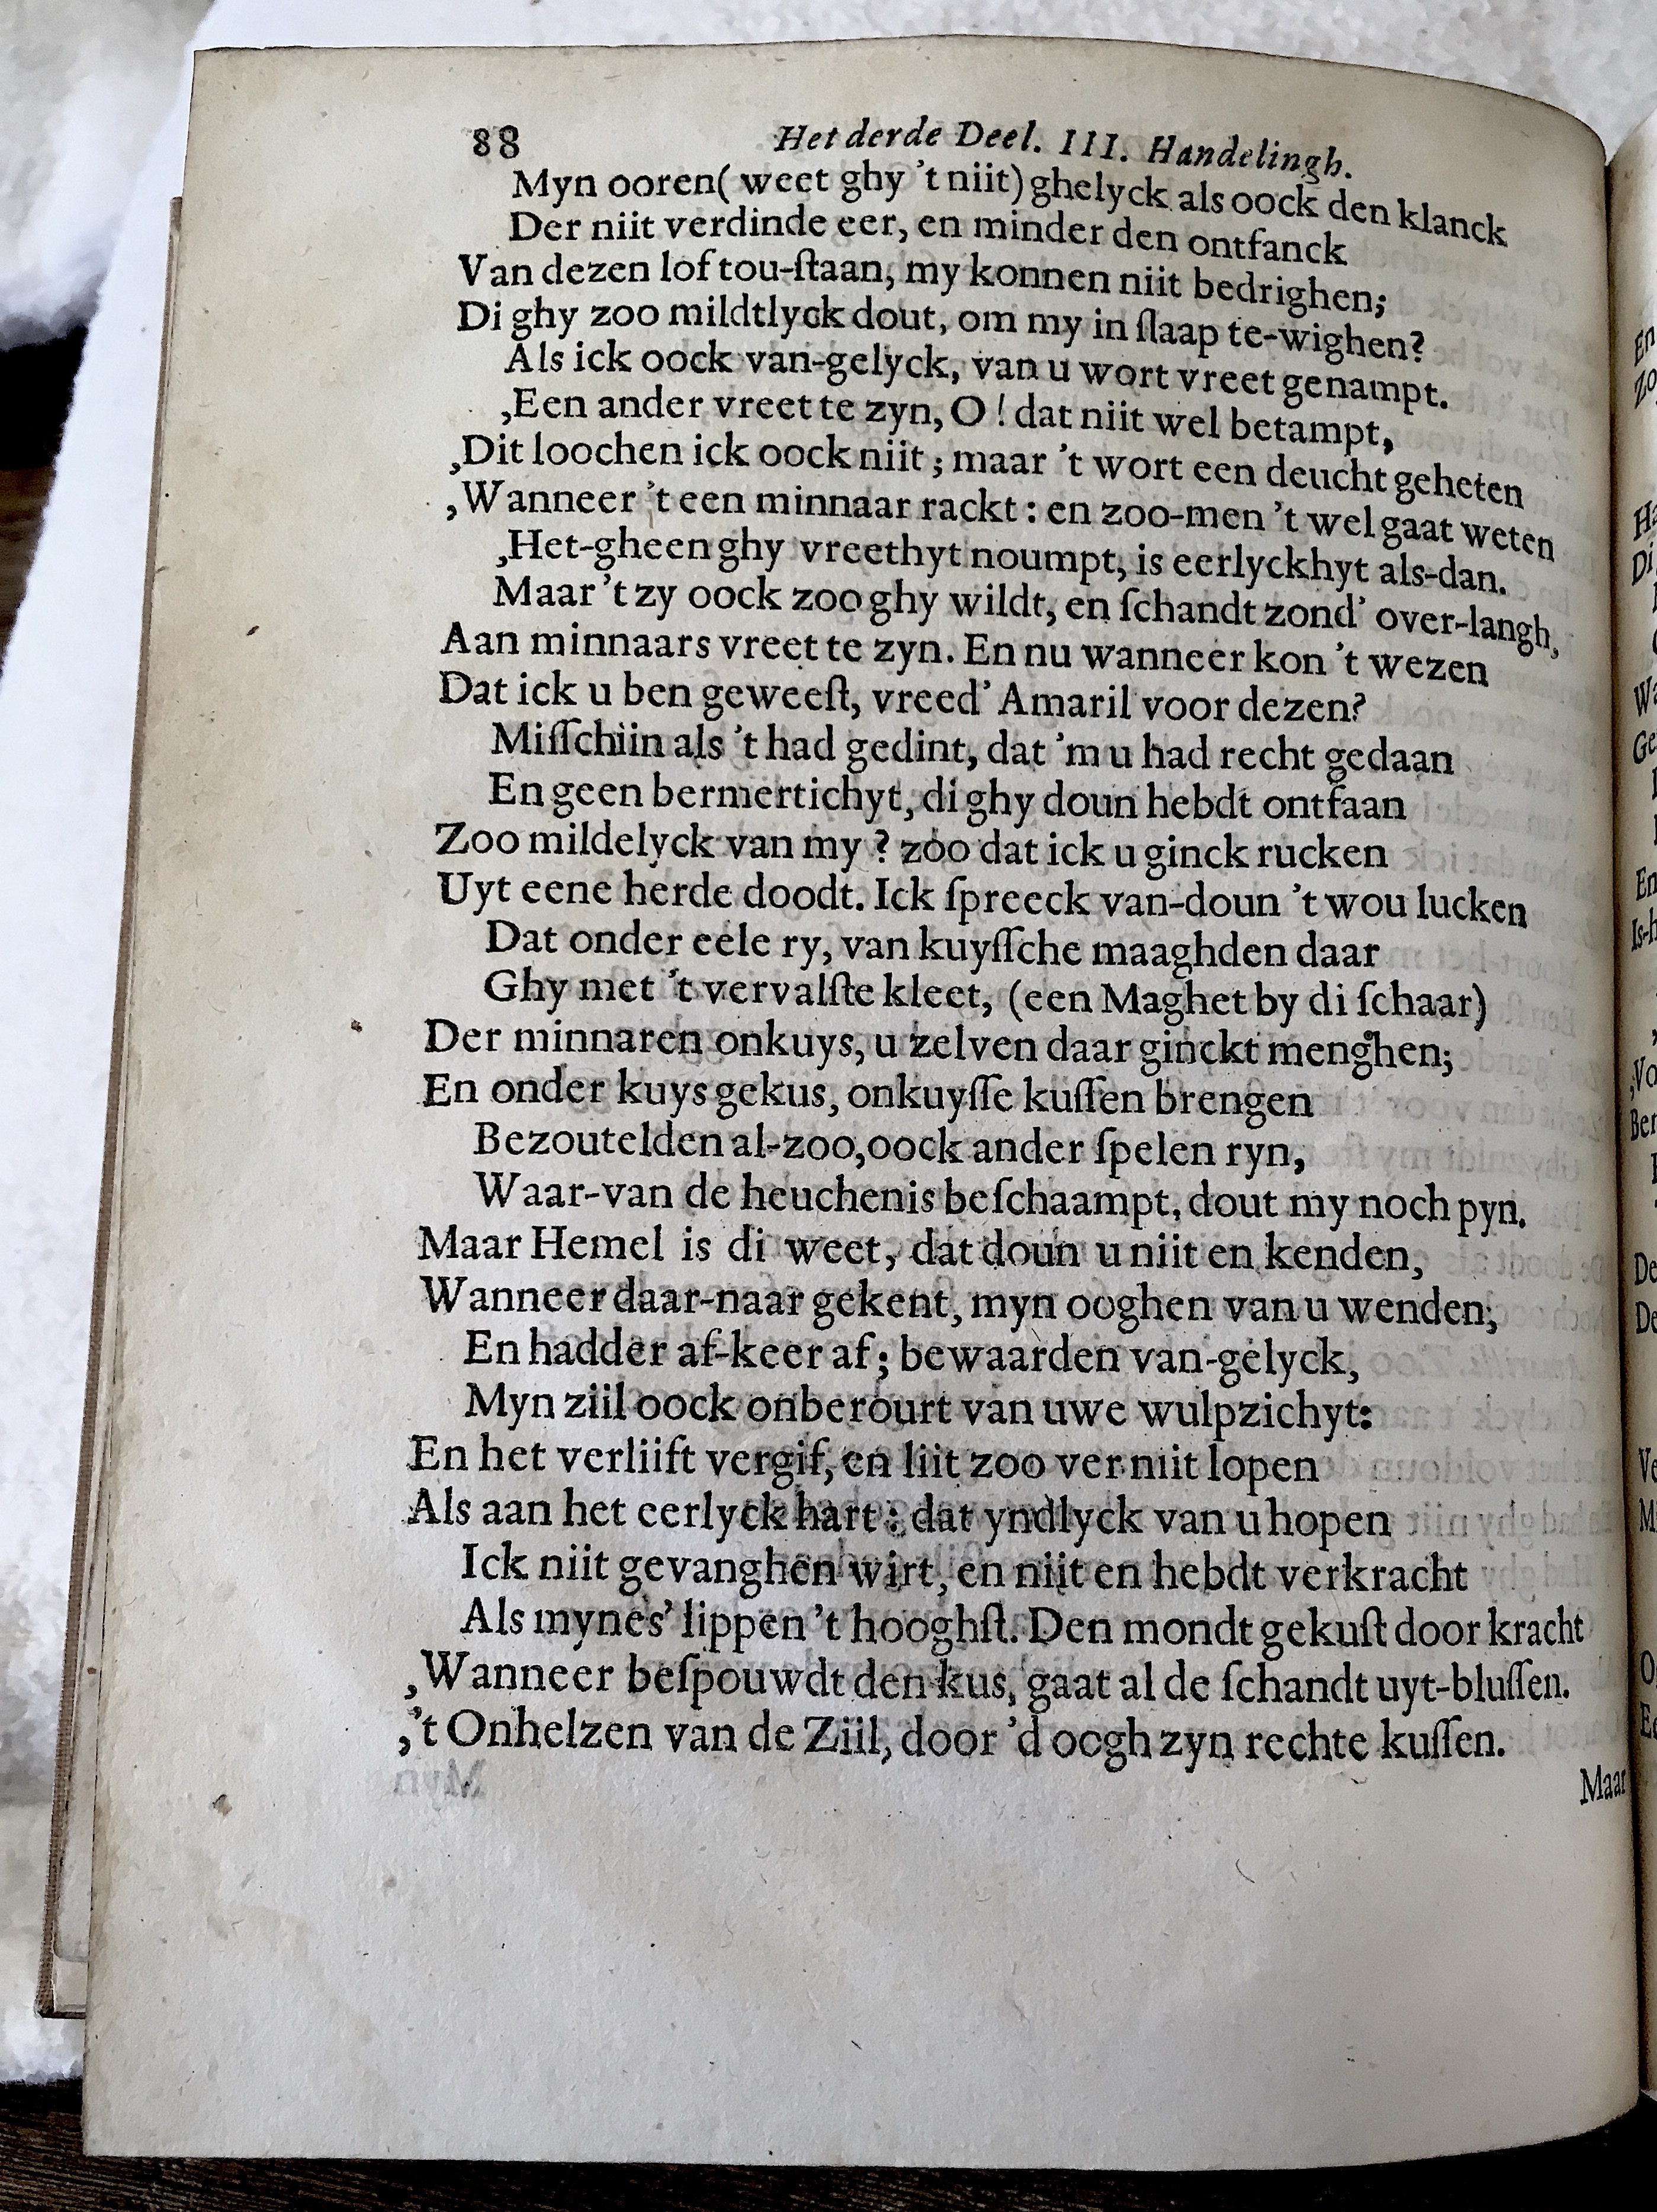 88 Het derde Deel. III. Handelingh.
Myn ooren( weet ghy 't niit) ghelyck als oock den klanck
Der niit verdinde eer, en minder den ontfanck
Van dezen lof tou-ſtaan, my konnen niit bedrighen;
Di ghy zoo mildtlyck dout, om my in ſlaap te-wighen?
Als ick oock van-gelyck, van u wort vreet genampt.
,Een ander vreet te zyn, O! dat niit wel betampt,
,Dit loochen ick oock niit; maar 't wort een deucht geheten
,Wanneer 't een minnaar rackt: en zoo-men 't wel gaat weten
,Het-gheen ghy vreethyt noumpt, is eerlyckhyt als-dan.
Maar 't zy oock zoo ghy wildt, en ſchandt zond' over-langh,
Aan minnaars vreet te zyn. En nu wanneer kon 't wezen
Dat ick u ben geweeſt, vreed' Amaril voor dezen?
Miſſchiin als 't had gedint, dat 'm u had recht gedaan
En geen bermertichyt, di ghy doun hebdt ontfaan
Zoo mildelyck van my? zoo dat ick u ginck rucken
Uyt eene herde doodt. Ick ſpreeck van-doun 't wou lucken
Dat onder eele ry, van kuyſſche maaghden daar
Ghy met 't vervalſte kleet, (een Maghet by di ſchaar)
Der minnaren onkuys, u zelven daar ginckt menghen;
En onder kuys gekus, onkuyſſe kuſſen brengen
Bezoutelden al-zoo, oock ander ſpelen ryn,
Waar-van de heuchenis beſchaampt, dout my noch pyn.
Maar Hemel is di weet, dat doun u niit en kenden,
Wanneer daar-naar gekent, myn ooghen van u wenden;
En hadder af-keer af; bewaarden van-gelyck,
Myn ziil oock onberourt van uwe wulpzichyt:
En het verliift vergif, en liit zoo ver niit lopen
Als aan het eerlyck hart: dat yndlyck van u hopen
Ick niit gevanghen wirt, en niit en hebdt verkracht
Als mynes' lippen 't hooghſt. Den mondt gekuſt door kracht
,Wanneer beſpouwdt den kus, gaat al de ſchandt uyt-bluſſen.
,'t Onhelzen van de Ziil, door 'd oogh zyn rechte kuſſen.
Maar